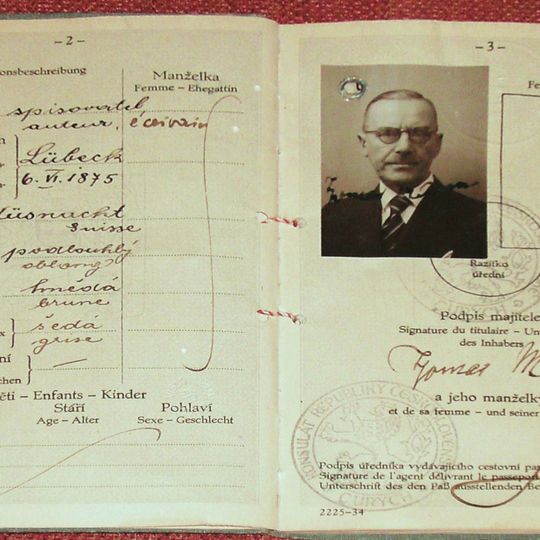 – 2 –
onsbeschreibung
Manželka
Femme – Ehegattin
spisovatel,
auteur, écrivain
Lübeck
6. VI. 1875
üsnacht
Suisse
podlouhlý
oblong
hnědá
brune
šedá
grise
ní
—
chen
ěti – Enfants – Kinder
Stáří
Age – Alter
Pohlaví
Sexe – Geschlecht
– 3 –
Fe
Razítko
úřední
Podpis majitele
Signature du titulaire – Un
des Inhabers
a jeho manželky
et de sa femme – und seiner
KONSULÁT REPUBLIKY ČESKOSLOVENSKÉ
CURYCH
Podpis úředníka vydávajícího cestovní pas
Signature de l'agent délivrant le passeport
Unterschrift des den Paß ausstellenden Be
2225–34